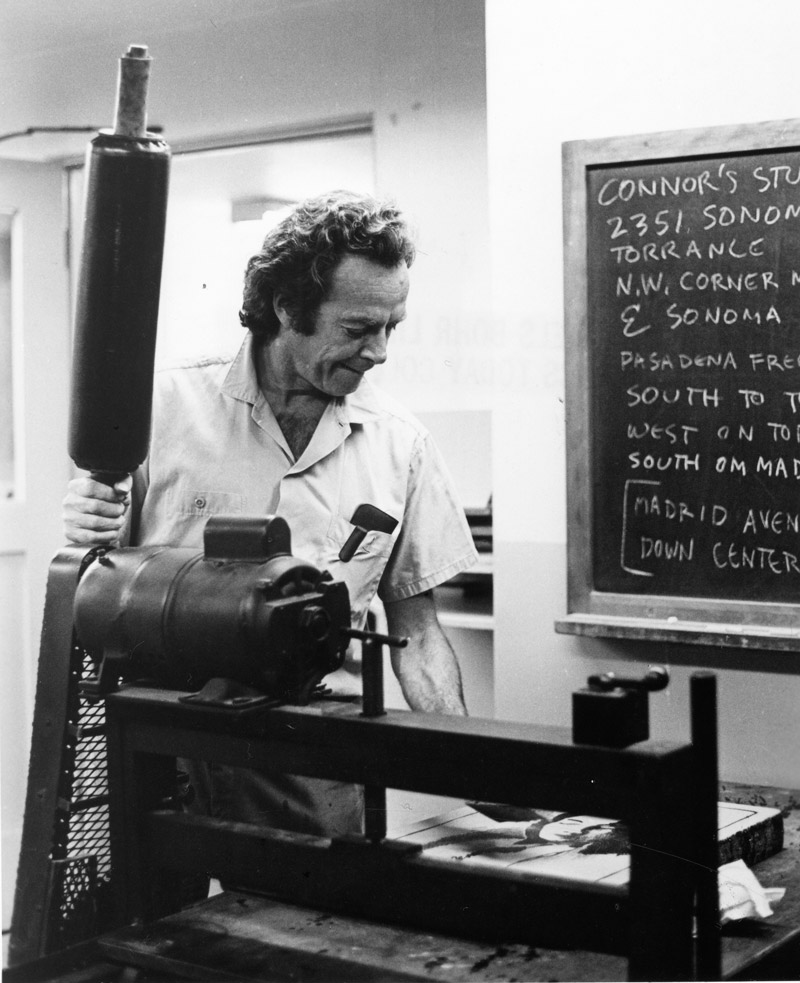 CONNOR'S STU
2351, SONOM
TORRANCE
N.W. CORNER
& SONOMA
PASADENA FREE
SOUTH TO T
WEST ON TOR
SOUTH OM MAD
MADRID AVEN
DOWN CENTER